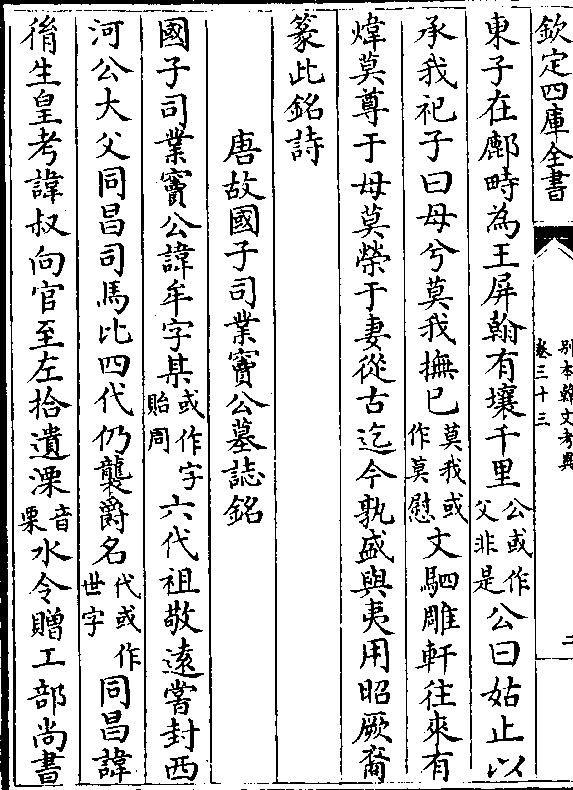 欽定四庫全書 別本韓文考異 卷三十三 二
東子在鄜畤為王屏翰有壤千里公或作父非是公曰姑止以
承我祀子曰母兮莫我撫已莫我或作莫慰文駟雕軒往來有
煒莫尊于母莫榮于妻從古迄今孰盛與夷用昭厥裔
篆此銘詩
唐故國子司業竇公墓誌銘
國子司業竇公諱牟字某或作字貽周六代祖敬遠嘗封西
河公大父同昌司馬比四代仍襲爵名代或作世字同昌諱
㣧生皇考諱叔向官至左拾遺溧音栗水令贈工部尚書